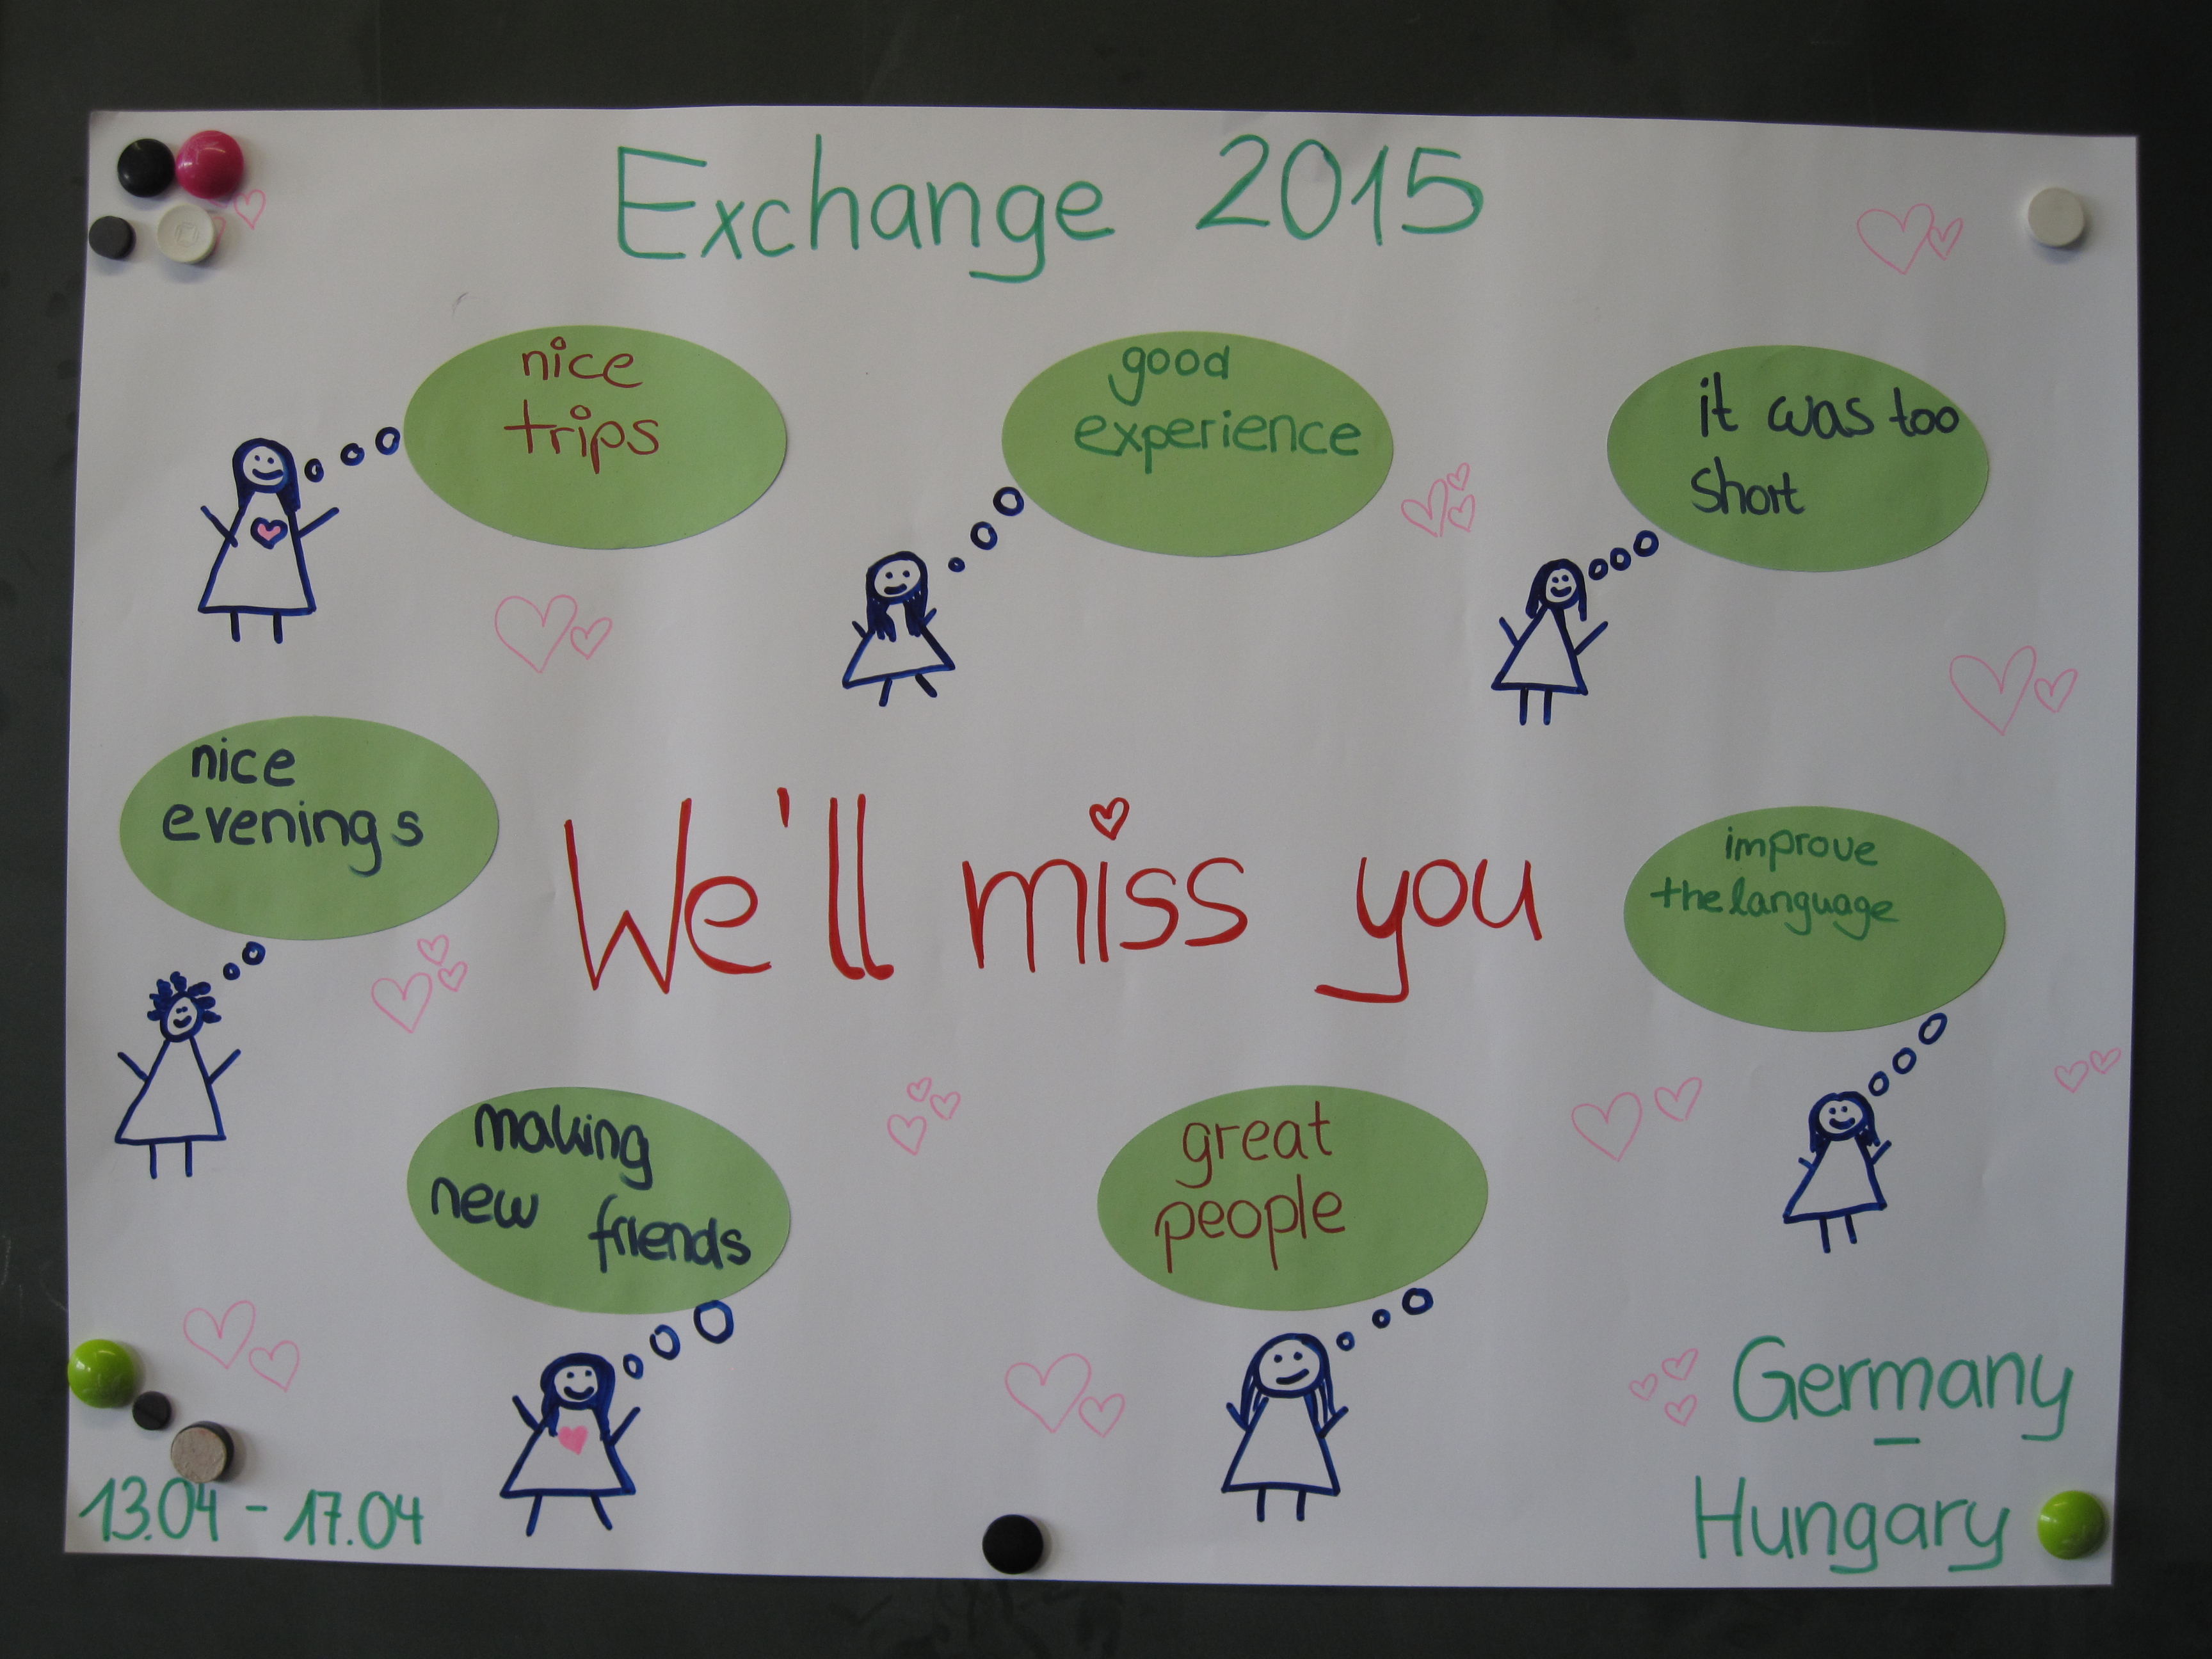 Exchange 2015
nice
trips
good
experience
it was too
short
nice
evenings
We'll miss you
improve
the language
making
new friends
great
people
13.04 - 17.04
Germany
-
Hungary